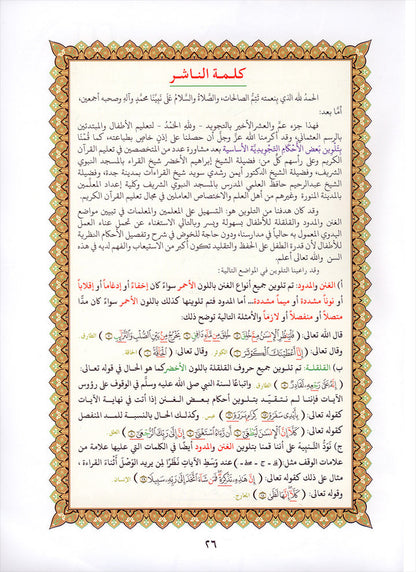 كلمة الناشر
الحمد لله الذي بنعمته تتم الصالحات، والصلاة والسلام على نبينا محمد وآله وصحبه أجمعين،
أما بعد:
فهذا جزء عمَّ والعشر الأخير بالتجويد - ولله الحمد - لتعليم الأطفال والمبتدئين
بالرسم العثماني، وقد أكرمنا الله عزَّ وجلَّ أن حصلنا على إذن خاص بطباعته، كما قمنا
بتلوين بعض الأحكام التجويدية الأساسية بعد مشاورة عدد من المتخصصين في تعليم القرآن
الكريم وعلى رأسهم كلٌّ من: فضيلة الشيخ إبراهيم الأخضر شيخ القراء بالمسجد النبوي
الشريف، وفضيلة الشيخ الدكتور أيمن رشدي سويد شيخ القراءات بمدينة جدة، وفضيلة
الشيخ عبدالرحيم حافظ العلمي المدرس بالمسجد النبوي الشريف وكلية إعداد المعلمين
بالمدينة المنورة وغيرهم من أهل العلم والاختصاص العاملين في مجال تعليم القرآن الكريم.
وقد كان هدفنا من التلوين هو: التسهيل على المعلمين والمعلمات في تبيين مواضع
الغنن والمدود والقلقلة للأطفال بسهولة ويسر وبالتالي الاستغناء عن تحمل عناء العمل
اليدوي المعمول به حالياً في مدارسنا ودون حاجة للخوض في شرح وتفصيل الأحكام النظرية
للأطفال لأن قدرة الطفل على الحفظ والتقليد تكون أكبر من الاستيعاب والفهم لديه في هذه
السن والله تعالى أعلم.
وقد راعينا التلوين في المواضع التالية:
أ) الغنن والمدود: تم تلوين جميع أنواع الغنن باللون الأحمر سواءً كان إخفاءً أو إدغاماً أو إقلاباً
أو نوناً مشددة أو ميماً مشددة... أما المدود فتم تلوينها كذلك باللون الأحمر سواءً كان مدًّا
متصلاً أو منفصلاً أو لازماً والأمثلة التالية توضح ذلك:
قال الله تعالى: ﴿فَلْيَنظُرِ الْإِنسَٰنُ مِمَّ خُلِقَ ۝ خُلِقَ مِن مَّآءٍ دَافِقٍ ۝ يَخْرُجُ مِنۢ بَيْنِ الصُّلْبِ وَالتَّرَآئِبِ﴾ الطارق.
وقال تعالى: ﴿إِنَّآ أَعْطَيْنَٰكَ الْكَوْثَرَ﴾ الكوثر. وقال تعالى: ﴿الْحَآقَّةُ﴾ الحاقة.
ب) القلقلة: تم تلوين جميع حروف القلقلة باللون الأخضر كما هو الحال في قوله تعالى:
﴿إِنَّهُ عَلَىٰ رَجْعِهِ لَقَادِرٌ﴾ الطارق. واتباعاً لسنة النبي صلى الله عليه وسلَّم في الوقوف على رؤوس
الآيات فإننا لم نتقيَّد بتلوين أحكام بعض الغنن إذا أتت في نهاية الآيات
كقوله تعالى: ﴿بِأَيْدِي سَفَرَةٍ ۝ كِرَامٍ بَرَرَةٍ﴾ عبس. وكذلك الحال بالنسبة للمد المنفصل
كقوله تعالى: ﴿كَلَّآ إِنَّ الْإِنسَٰنَ لَيَطْغَىٰ ۝ أَن رَّءَاهُ اسْتَغْنَىٰ ۝ إِنَّ إِلَىٰ رَبِّكَ الرُّجْعَىٰ﴾ العلق.
ج) نَوَدُّ التَّنبيهَ على أننا قمنا بتلوين الغنن والمدود أيضًا في الكلمات التي عليها علامة من
علامات الوقف مثل ( صلى - ج - قلى ) عند وسط الآيات نظرًا لمن يريد الوصل أثناء القراءة،
مثال على ذلك كقوله تعالى: ﴿إِنَّ هَٰذِهِ تَذْكِرَةٌ فَمَن شَآءَ اتَّخَذَ إِلَىٰ رَبِّهِ سَبِيلًا﴾ الإنسان.
وقوله تعالى: ﴿كَلَّآ إِنَّهَا لَظَىٰ﴾ المعارج.
٢٦